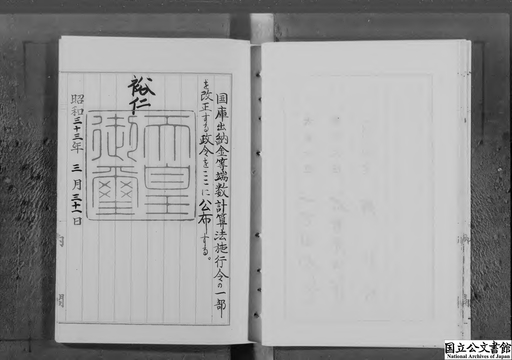 国庫出納金等端数計算法施行令の一部
を改正する政令をここに公布する。
裕仁
天皇
御璽
昭和三十三年三月三十一日
国立公文書館
National Archives of Japan